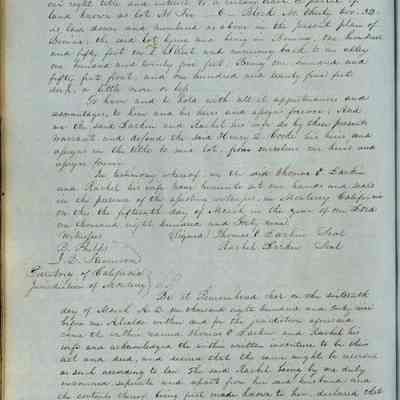 our right title and interest to a certain tract or parcel of
land known as lot No
as laid down and numbered as above on the present plan of
Benicia, the said lot lying and being in Benicia, one hundred
and fifty feet on I Street and running back to an alley
one hundred and twenty five feet, Being one hundred and
fifty feet front, and one hundred and twenty five feet
deep, a little more or less
To have and to hold with all it appurtenances and
advantages, to him and his heirs and assigns forever; And
we the said Larkin and Rachel his wife do by these presents
warrant and defend the said Henry D. Cooke his heirs and
assigns in the title to said lot, from ourselves our heirs and
assigns forever
In testimony whereof, we the said Thomas O Larkin
and Rachel his wife have hereunto set our hands and seals
in the presence of the attesting witnesses, in Monterey California
on this the fifteenth day of March in the year of our Lord
one thousand eight hundred and forty nine
Witnesses Signed Thomas O Larkin Seal
Rachel Larkin Seal
Territory of California
Jurisdiction of Monterey
Be it Remembered that on the sixteenth
day of March A.D. one thousand eight hundred and forty nine
before me Alcalde within and for the jurisdiction aforesaid
came the within named Thomas O Larkin and Rachel his
wife and acknowledged the within written indenture to be their
act and deed, and desired that the same might be recorded
as such according to law the said Rachel being by me duly
examined separate and apart from her said husband and
the contents thereof being first made known to her, declared that